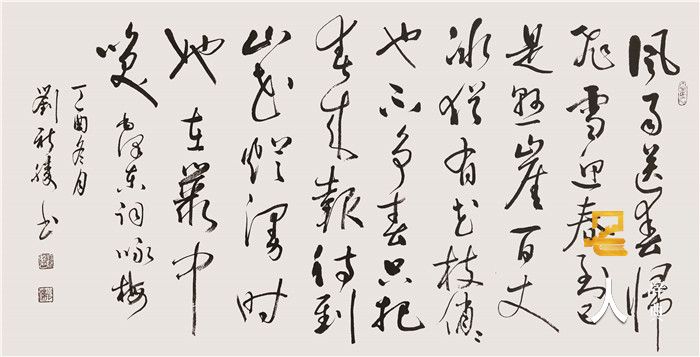 風雨送春歸
飛雪迎春到已
是懸崖百丈
冰猶有花枝俏〻
也不爭春只把
春來報待到
山花爛漫時
她在叢中
咲 毛澤東詞咏梅
丁酉冬月
劉 书